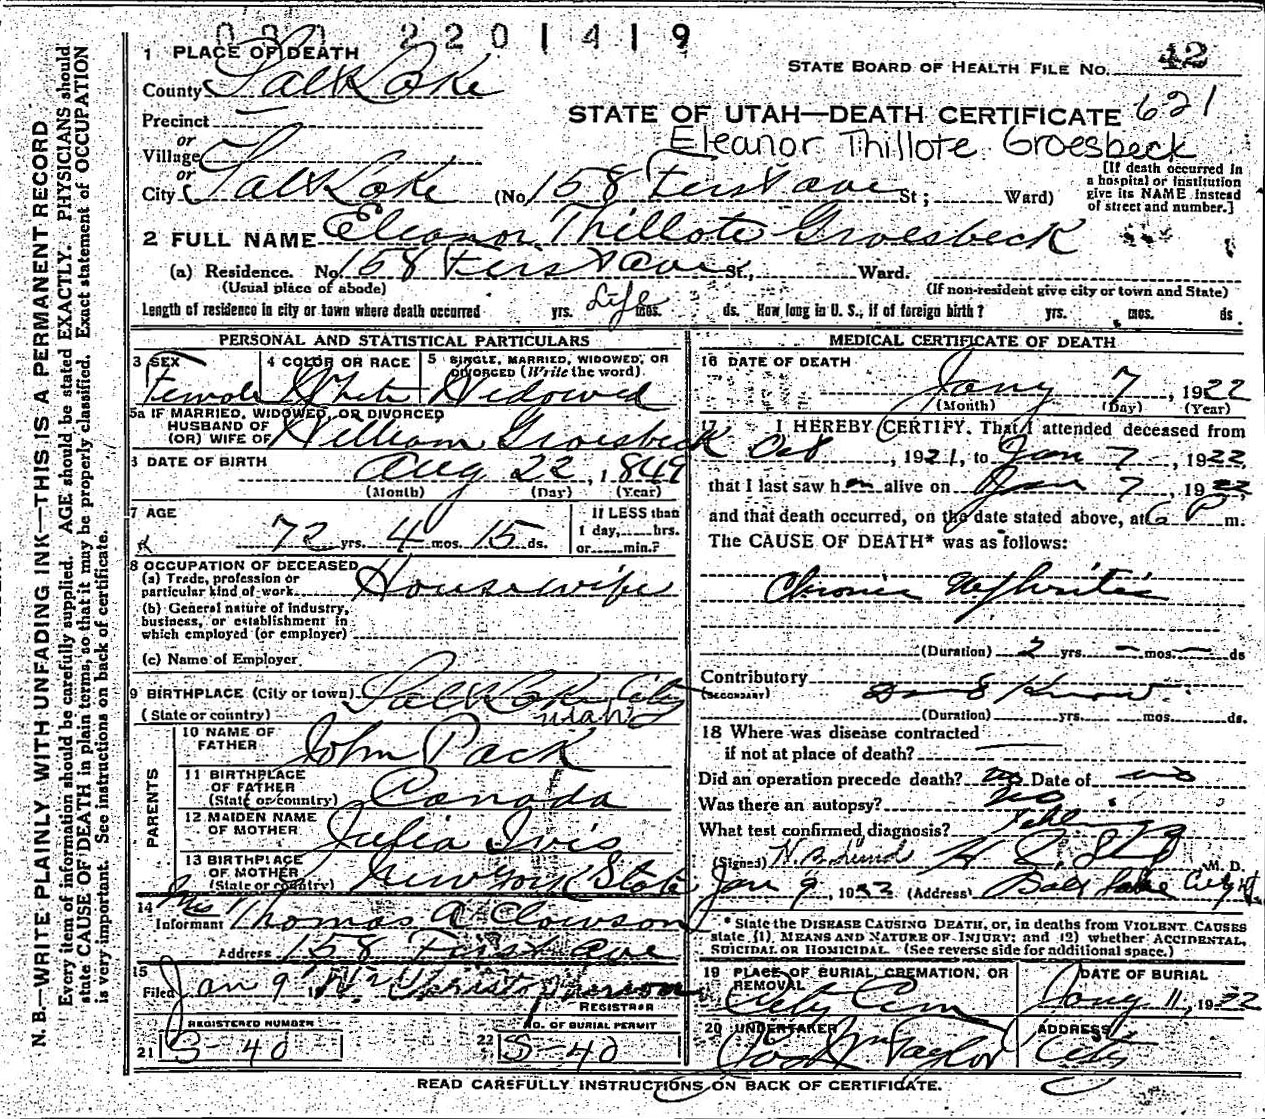 2201419
1 PLACE OF DEATH
STATE BOARD OF HEALTH FILE NO. 42
County Salt Lake
STATE OF UTAH—DEATH CERTIFICATE 621
Precinct
Eleanor Thillote Groesbeck
or
Village
or
City Salt Lake (No 158 First ave St; Ward)
[If death occurred in
a hospital or institution
give its NAME instead
of street and number.]
2 FULL NAME Eleanor Thillote Groesbeck
(a) Residence. No. 158 First ave St., Ward.
(Usual place of abode) (If non-resident give city or town and State)
Length of residence in city or town where death occurred yrs. Life mos. ds. How long in U. S., if of foreign birth? yrs. mos. ds.
PERSONAL AND STATISTICAL PARTICULARS
3 SEX Female
4 COLOR OR RACE White
5 SINGLE, MARRIED, WIDOWED, OR
DIVORCED (Write the word) Widowed
5a IF MARRIED, WIDOWED, OR DIVORCED
HUSBAND OF
(OR) WIFE OF William Groesbeck
DATE OF BIRTH Aug 22, 1849
(Month) (Day) (Year)
7 AGE 72 yrs. 4 mos. 15 ds.
If LESS than
1 day, hrs.
or min.?
8 OCCUPATION OF DECEASED
(a) Trade, profession or
particular kind of work Housewife
(b) General nature of industry,
business, or establishment in
which employed (or employer)
(c) Name of Employer
9 BIRTHPLACE (City or town) Salt Lake City
(State or country) Utah
PARENTS
10 NAME OF
FATHER John Pack
11 BIRTHPLACE
OF FATHER
(State or country) Canada
12 MAIDEN NAME
OF MOTHER Julia Ivis
13 BIRTHPLACE
OF MOTHER
(State or country) New York State
14 Informant Mrs Thomas A Clawson
Address 158 First ave
15 Filed Jan 9 Wm Christopherson
REGISTRAR
REGISTERED NUMBER
21 S-40
NO. OF BURIAL PERMIT
22 S-40
MEDICAL CERTIFICATE OF DEATH
16 DATE OF DEATH Jany 7, 1922
(Month) (Day) (Year)
17 I HEREBY CERTIFY, That I attended deceased from
Oct 8, 1921, to Jan 7, 1922
that I last saw her alive on Jan 7, 1922
and that death occurred, on the date stated above, at 6 P m.
The CAUSE OF DEATH* was as follows:
Chronic Nephritis
(Duration) 2 yrs. — mos. — ds
Contributory
(SECONDARY) Know
(Duration) yrs. mos. ds.
18 Where was disease contracted
if not at place of death?
Did an operation precede death? no Date of no
Was there an autopsy? no
What test confirmed diagnosis?
(Signed) N. B. Lund M. D.
Jan 9, 19 (Address) Salt Lake City Ut.
* State the DISEASE CAUSING DEATH, or, in deaths from VIOLENT CAUSES
state (1) MEANS AND NATURE OF INJURY; and (2) whether ACCIDENTAL,
SUICIDAL OR HOMICIDAL. (See reverse side for additional space.)
19 PLACE OF BURIAL, CREMATION, OR
REMOVAL City Cem
DATE OF BURIAL
Jany 11, 1922
20 UNDERTAKER Jos Wm Taylor
ADDRESS City
READ CAREFULLY INSTRUCTIONS ON BACK OF CERTIFICATE.
N. B.—WRITE PLAINLY WITH UNFADING INK—THIS IS A PERMANENT RECORD
Every item of information should be carefully supplied. AGE should be stated EXACTLY. PHYSICIANS should
state CAUSE OF DEATH in plain terms, so that it may be properly classified. Exact statement of OCCUPATION
is very important. See instructions on back of certificate.